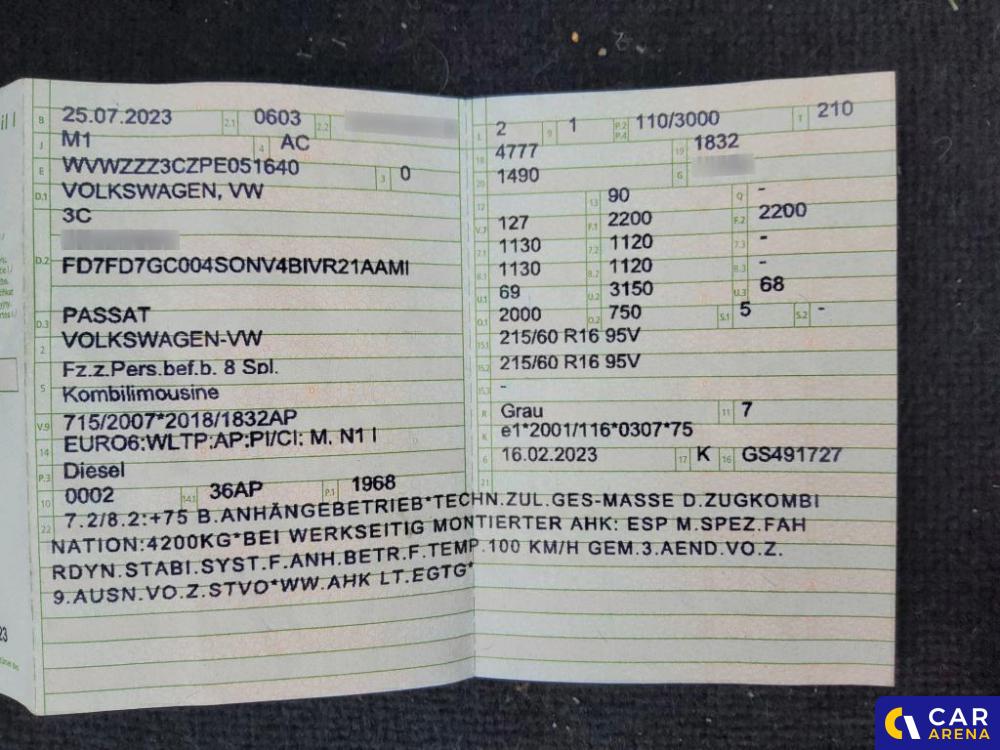 B 25.07.2023 2.1 0603 2.2
J M1 4 AC
E WVWZZZ3CZPE051640 3 0
D.1 VOLKSWAGEN, VW
3C
D.2 FD7FD7GC004SONV4BIVR21AAMI
D.3 PASSAT
2 VOLKSWAGEN-VW
5 Fz.z.Pers.bef.b. 8 Spl.
Kombilimousine
V.9 715/2007*2018/1832AP
14 EURO6:WLTP:AP:PI/CI: M. N1 I
P.3 Diesel
10 0002 14.1 36AP P.1 1968
L 2 9 1 P.2 P.4 110/3000 T 210
18 4777 19 1832
20 1490 G
12 13 90 Q -
V.7 127 F.1 2200 F.2 2200
7.1 1130 7.2 1120 7.3 -
8.1 1130 8.2 1120 8.3 -
U.1 69 U.2 3150 U.3 68
O.1 2000 O.2 750 S.1 5 S.2 -
15.1 215/60 R16 95V
15.2 215/60 R16 95V
15.3 -
R Grau 11 7
K e1*2001/116*0307*75
6 16.02.2023 17 K 16 GS491727
21
22 7.2/8.2:+75 B.ANHÄNGEBETRIEB*TECHN.ZUL.GES-MASSE D.ZUGKOMBI
NATION:4200KG*BEI WERKSEITIG MONTIERTER AHK: ESP M.SPEZ.FAH
RDYN.STABI.SYST.F.ANH.BETR.F.TEMP.100 KM/H GEM.3.AEND.VO.Z.
9.AUSN.VO.Z.STVO*WW.AHK LT.EGTG*
CAR
ARENA